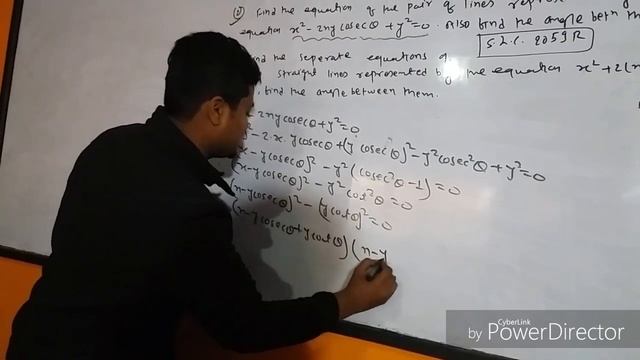 Find the equation of the pair of lines repres
equation x² - 2xy cosec θ + y² = 0. Also find the angle betn th
S.L.C. 2059 R
nd the seperate equations o
straight lines represented by the equation x² + 2(
find the angle between them.
2xy cosec θ + y² = 0
² - 2 · x · y cosec θ + (y cosec θ)² - y² cosec² θ + y² = 0
x - y cosec θ)² - y² (cosec² θ - 1) = 0
(x - y cosec θ)² - y² cot² θ = 0
(x - y cosec θ)² - (y cot θ)² = 0
(x - y cosec θ + y cot θ) (x - y
CyberLink
by PowerDirector